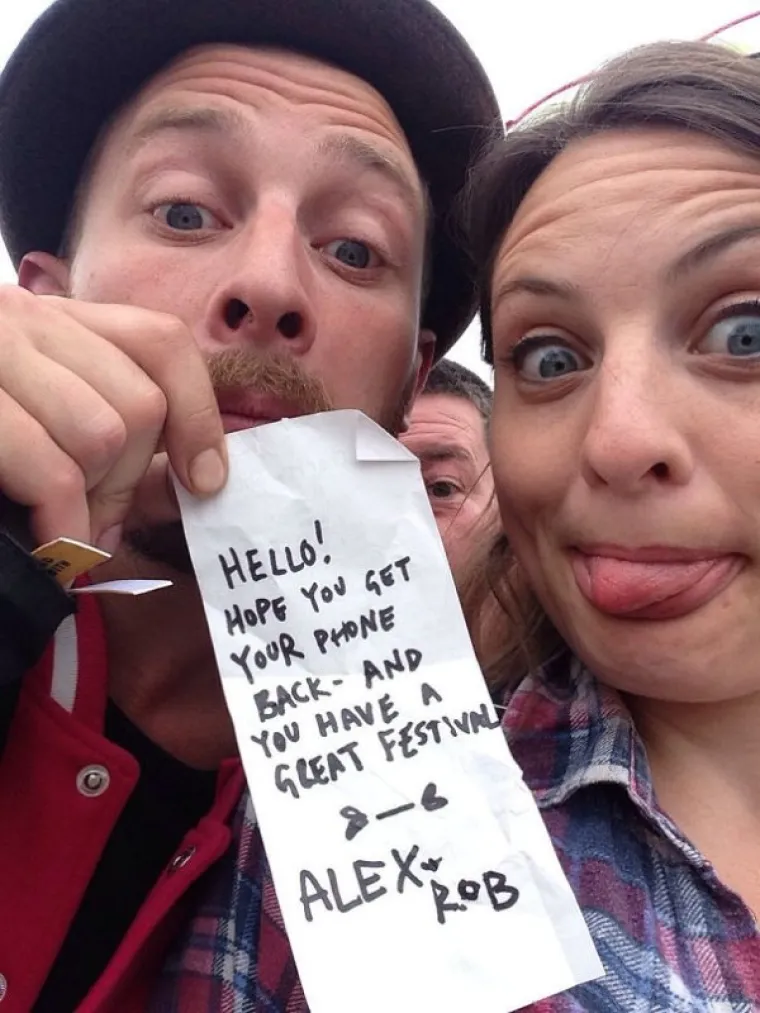 HELLO!
HOPE YOU GET
YOUR PHONE
BACK- AND
YOU HAVE A
GREAT FESTIVAL
ALEX+
ROB